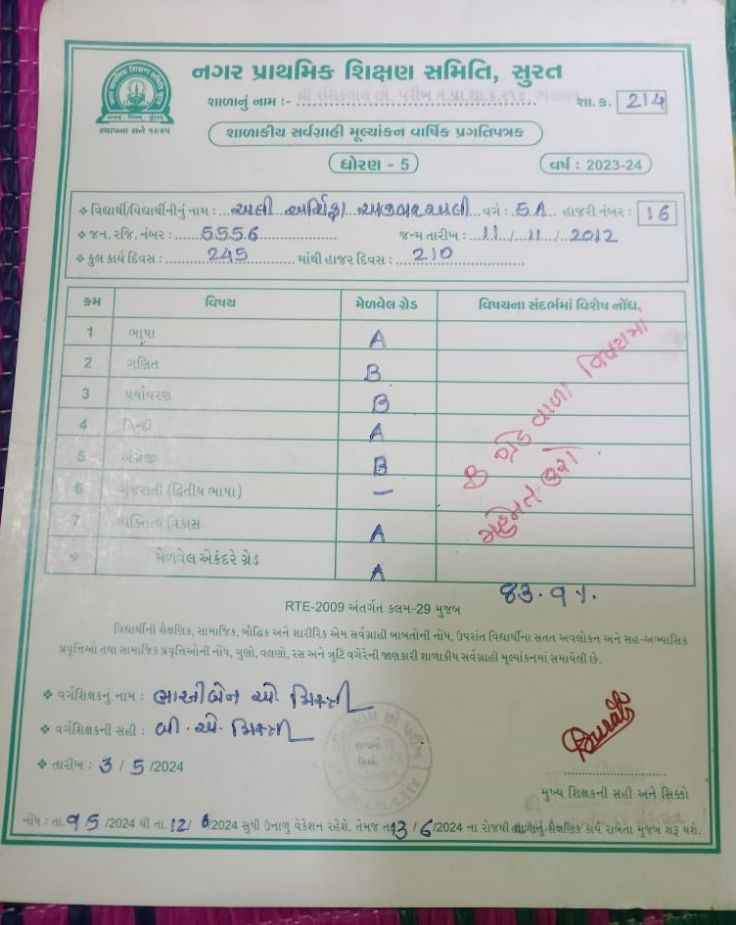 નગર પ્રાથમિક શિક્ષણ સમિતિ, સુરત
શાળાનું નામ :- શા. ક્ર. 214
શાળાકીય સર્વગ્રાહી મૂલ્યાંકન વાર્ષિક પ્રગતિપત્રક
ધોરણ - 5 વર્ષ : 2023-24
❖ વિદ્યાર્થી/વિદ્યાર્થીનીનું નામ : અલી અકબરઅલી વર્ગ : 5A હાજરી નંબર : 16
❖ જન. રજિ. નંબર : 5556 જન્મ તારીખ : 11 / 11 / 2012
❖ કુલ કાર્ય દિવસ : 245 માંથી હાજર દિવસ : 210
ક્રમ વિષય મેળવેલ ગ્રેડ વિષયના સંદર્ભમાં વિશેષ નોંધ
1 ભાષા A
2 ગણિત B
3 પર્યાવરણ B
4 હિન્દી A
5 અંગ્રેજી B
6 ગુજરાતી (દ્વિતીય ભાષા) –
7 વ્યક્તિત્વ વિકાસ A
મેળવેલ એકંદરે ગ્રેડ A
B ગ્રેડ વાળા વિષયમાં
મહેનત કરો.
83.9%.
RTE-2009 અંતર્ગત કલમ-29 મુજબ
વિદ્યાર્થીની શૈક્ષણિક, સામાજિક, બૌદ્ધિક અને શારીરિક એમ સર્વગ્રાહી બાબતોની નોંધ, ઉપરાંત વિદ્યાર્થીના સતત અવલોકન અને સહ-અભ્યાસિક
પ્રવૃત્તિઓ તથા સામાજિક પ્રવૃત્તિઓની નોંધ, ગુણો, વલણો, રસ અને ત્રુટિ વગેરેની જાણકારી શાળાકીય સર્વગ્રાહી મૂલ્યાંકનમાં સમાયેલી છે.
❖ વર્ગશિક્ષકનું નામ : એ. મિસ્ત્રી
❖ વર્ગશિક્ષકની સહી : બી. એ. મિસ્ત્રી
❖ તારીખ : 3 / 5 /2024
મુખ્ય શિક્ષકની સહી અને સિક્કો
નોંધ : તા. 9 5 /2024 થી તા. 12/ 6 2024 સુધી ઉનાળુ વેકેશન રહેશે. તેમજ તા 13 / 6 /2024 ના રોજથી શૈક્ષણિક કાર્ય રાબેતા મુજબ શરૂ થશે.